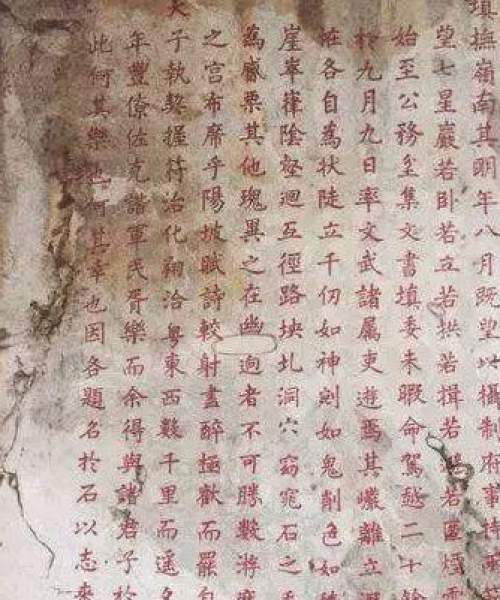 填撫嶺南其明年八月既望以攝制府事
望七星巖若卧若立若拱若揖若若匿煙雲
始至公務坌集文書填委未暇命駕越二十餘
於九月九日率文武諸属吏遊焉其巉離立
各自為狀陡立千仞如神剜如鬼削色如
崖峯嵂陰壑迴互徑路坱圠洞穴窈窕石之
為栗其他瑰異之在幽逈者不可勝數游
之宮布席乎陽坡賦詩較射盡醉極歡而罷
天子執契握符治化翔洽粤東西數千里而遥
年豐僚佐克諧軍民胥樂而余得與諸君子於
此何其樂也何其幸也因各題名於石以志來